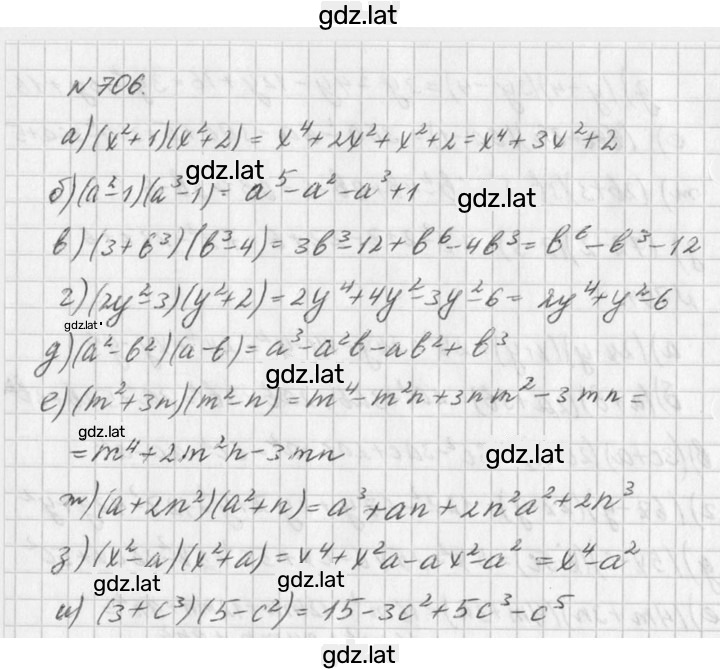 gdz.lat
N 706.
а) (x²+1)(x²+2) = x⁴+2x²+x²+2 = x⁴+3x²+2
gdz.lat
б) (a²-1)(a³-1) = a⁵-a²-a³+1
gdz.lat
в) (3+b³)(b³-4) = 3b³-12+b⁶-4b³ = b⁶-b³-12
г) (2y²-3)(y²+2) = 2y⁴+4y²-3y²-6 = 2y⁴+y²-6
gdz.lat
д) (a²-b²)(a-b) = a³-a²b-ab²+b³
gdz.lat
е) (m²+3n)(m²-n) = m⁴-m²n+3nm²-3mn =
gdz.lat
= m⁴+2m²n-3mn
gdz.lat
ж) (a+2n²)(a²+n) = a³+an+2n²a²+2n³
з) (x²-a)(x²+a) = x⁴+x²a-ax²-a² = x⁴-a²
gdz.lat
gdz.lat
и) (3+c³)(5-c²) = 15-3c²+5c³-c⁵
gdz.lat